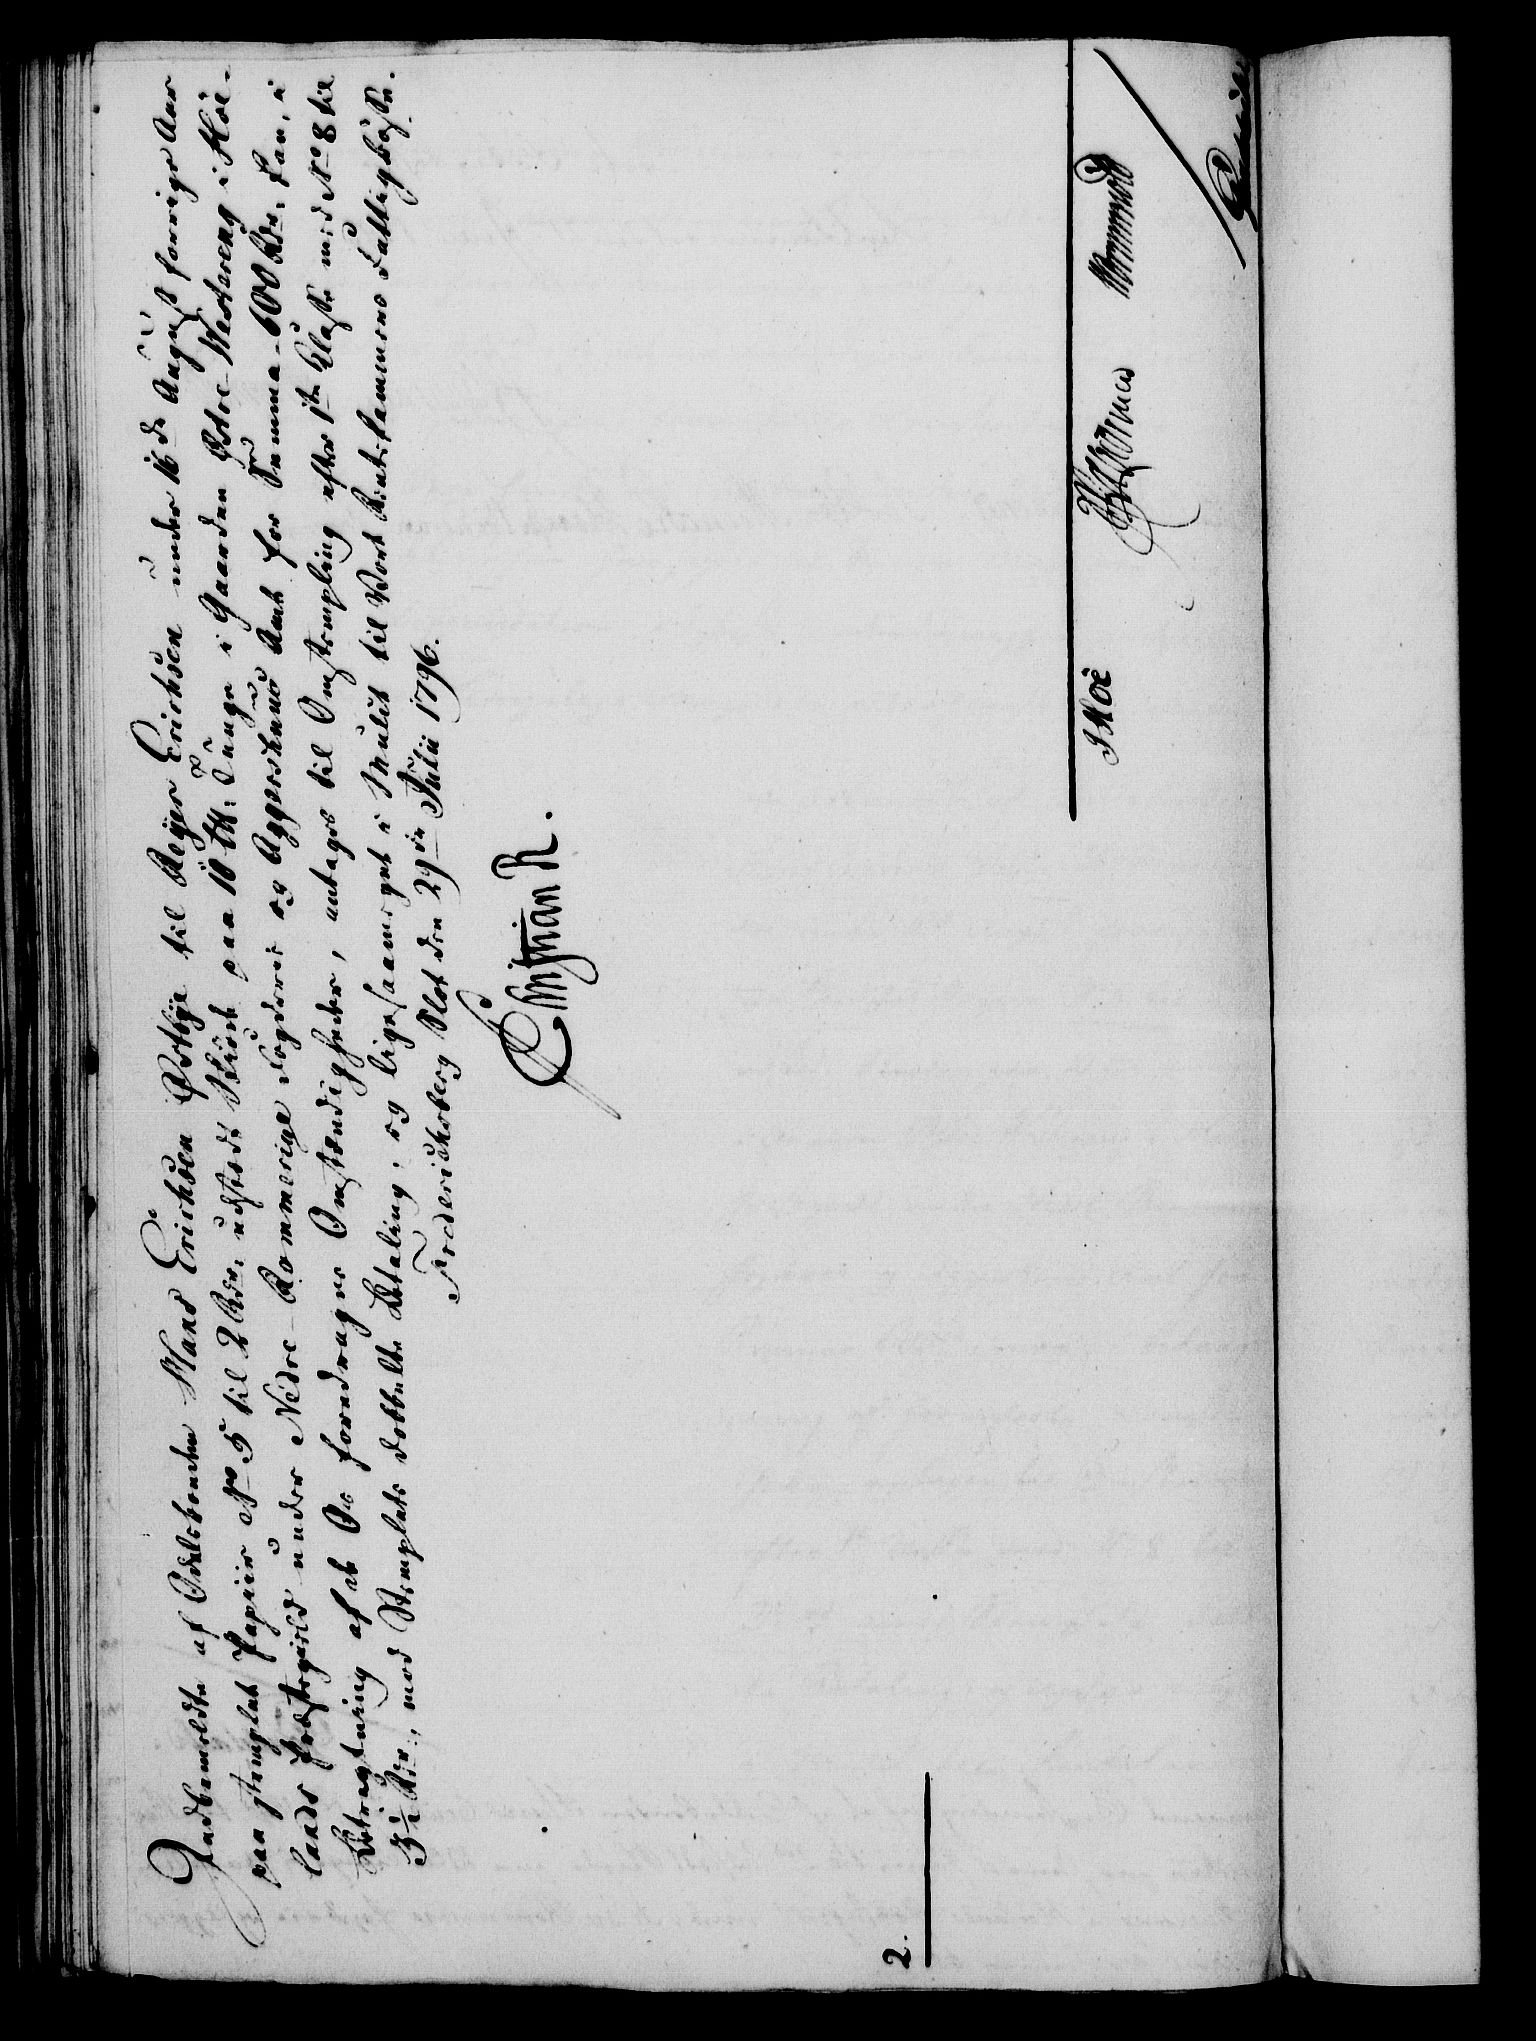 Indbemeldte af Odelsbonden Hans Erichsen Østbÿe til Reÿer Erichsen under 16de August forrige Aar
paa stemplet Papiir No 5 til 2 Rdr. udstedt Skiøde paa 10 Lispd. Tunge i Gaarden Østre-Westereng i Høe-
lands Præstegield under Nedre-Rommerige Fogderie og Aggershuus Amt for Summa 600 Rdr. kan, i
Betragtning af de Os foredragne Omstændigheder, antages til Omstempling efter 1ste Classe med No 8 til
3½ Rdr., mod Stemplets dobbelte Betaling, og ligesaameget i Mulct til Vort Rentekammers Fattigbøsse.
Frederichsberg Slot den 29de Julii 1796.
Christian R.
2.
JHoë